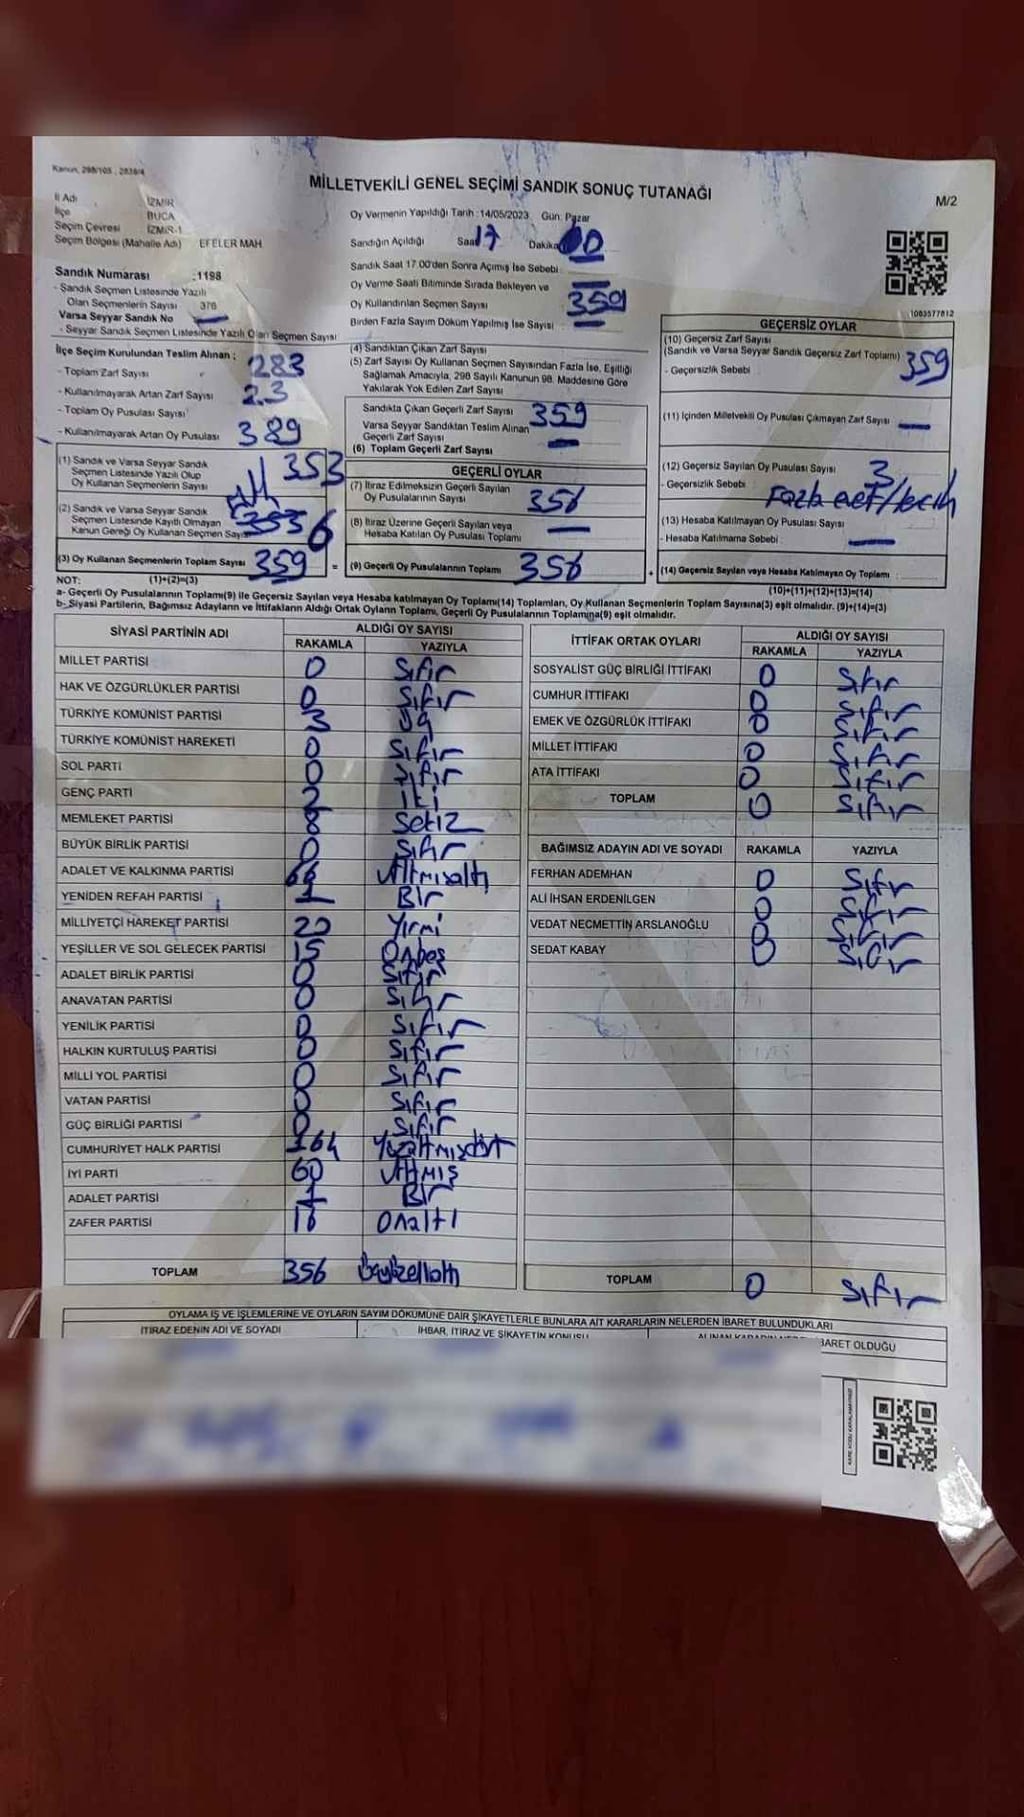 Kanun: 298/105 , 2839/4
MİLLETVEKİLİ GENEL SEÇİMİ SANDIK SONUÇ TUTANAĞI
M/2
İl Adı İZMİR
İlçe BUCA
Seçim Çevresi İZMİR-1
Seçim Bölgesi (Mahalle Adı) EFELER MAH.
Sandık Numarası :1198
- Sandık Seçmen Listesinde Yazılı
Olan Seçmenlerin Sayısı 376
Varsa Seyyar Sandık No —
- Seyyar Sandık Seçmen Listesinde Yazılı Olan Seçmen Sayısı
Oy Vermenin Yapıldığı Tarih :14/05/2023 Gün: Pazar
Sandığın Açıldığı Saat 17 Dakika
Sandık Saat 17:00'den Sonra Açmış İse Sebebi: —
Oy Verme Saati Bitiminde Sırada Bekleyen ve
Oy Kullandırılan Seçmen Sayısı : 359
Birden Fazla Sayım Döküm Yapılmış İse Sayısı : —
1003577812
İlçe Seçim Kurulundan Teslim Alınan ;
- Toplam Zarf Sayısı 283
- Kullanılmayarak Artan Zarf Sayısı 23
- Toplam Oy Pusulası Sayısı
- Kullanılmayarak Artan Oy Pusulası 389
(1) Sandık ve Varsa Seyyar Sandık
Seçmen Listesinde Yazılı Olup
Oy Kullanan Seçmenlerin Sayısı 353
(2) Sandık ve Varsa Seyyar Sandık
Seçmen Listesinde Kayıtlı Olmayan
Kanun Gereği Oy Kullanan Seçmen Sayısı 6
(3) Oy Kullanan Seçmenlerin Toplam Sayısı 359 =
(4) Sandıktan Çıkan Zarf Sayısı
(5) Zarf Sayısı Oy Kullanan Seçmen Sayısından Fazla İse, Eşitliği
Sağlamak Amacıyla, 298 Sayılı Kanunun 98. Maddesine Göre
Yakılarak Yok Edilen Zarf Sayısı
Sandıkta Çıkan Geçerli Zarf Sayısı 359
Varsa Seyyar Sandıktan Teslim Alınan
Geçerli Zarf Sayısı —
(6) Toplam Geçerli Zarf Sayısı
GEÇERLİ OYLAR
(7) İtiraz Edilmeksizin Geçerli Sayılan
Oy Pusulalarının Sayısı 356
(8) İtiraz Üzerine Geçerli Sayılan veya
Hesaba Katılan Oy Pusulası Toplamı —
(9) Geçerli Oy Pusulalarının Toplamı 356 +
GEÇERSİZ OYLAR
(10) Geçersiz Zarf Sayısı
(Sandık ve Varsa Seyyar Sandık Geçersiz Zarf Toplamı) 359
- Geçersizlik Sebebi :
(11) İçinden Milletvekili Oy Pusulası Çıkmayan Zarf Sayısı : —
(12) Geçersiz Sayılan Oy Pusulası Sayısı : 3
- Geçersizlik Sebebi : Fazla
(13) Hesaba Katılmayan Oy Pusulası Sayısı :
- Hesaba Katılmama Sebebi : —
(14) Geçersiz Sayılan veya Hesaba Katılmayan Oy Toplamı :
NOT: (1)+(2)=(3) (10)+(11)+(12)+(13)=(14)
a- Geçerli Oy Pusulalarının Toplamı(9) ile Geçersiz Sayılan veya Hesaba katılmayan Oy Toplamı(14) Toplamları, Oy Kullanan Seçmenlerin Toplam Sayısına(3) eşit olmalıdır. (9)+(14)=(3)
b- Siyasi Partilerin, Bağımsız Adayların ve İttifakların Aldığı Ortak Oyların Toplamı, Geçerli Oy Pusulalarının Toplamına(9) eşit olmalıdır.
SİYASİ PARTİNİN ADI ALDIĞI OY SAYISI
RAKAMLA YAZIYLA
MİLLET PARTİSİ 0 Sıfır
HAK VE ÖZGÜRLÜKLER PARTİSİ 0 Sıfır
TÜRKİYE KOMÜNİST PARTİSİ 3 Üç
TÜRKİYE KOMÜNİST HAREKETİ 0 Sıfır
SOL PARTİ 0 Sıfır
GENÇ PARTİ 2 İki
MEMLEKET PARTİSİ 8 Sekiz
BÜYÜK BİRLİK PARTİSİ 0 Sıfır
ADALET VE KALKINMA PARTİSİ 66 Altmışaltı
YENİDEN REFAH PARTİSİ 1 Bir
MİLLİYETÇİ HAREKET PARTİSİ 20 Yirmi
YEŞİLLER VE SOL GELECEK PARTİSİ 15 Onbeş
ADALET BİRLİK PARTİSİ 0 Sıfır
ANAVATAN PARTİSİ 0 Sıfır
YENİLİK PARTİSİ 0 Sıfır
HALKIN KURTULUŞ PARTİSİ 0 Sıfır
MİLLİ YOL PARTİSİ 0 Sıfır
VATAN PARTİSİ 0 Sıfır
GÜÇ BİRLİĞİ PARTİSİ 0 Sıfır
CUMHURİYET HALK PARTİSİ 164 Yüzaltmışdört
İYİ PARTİ 60 Altmış
ADALET PARTİSİ 1 Bir
ZAFER PARTİSİ 16 Onaltı
TOPLAM 356 Üçyüzellialtı
İTTİFAK ORTAK OYLARI ALDIĞI OY SAYISI
RAKAMLA YAZIYLA
SOSYALİST GÜÇ BİRLİĞİ İTTİFAKI 0 Sıfır
CUMHUR İTTİFAKI 0 Sıfır
EMEK VE ÖZGÜRLÜK İTTİFAKI 0 Sıfır
MİLLET İTTİFAKI 0 Sıfır
ATA İTTİFAKI 0 Sıfır
TOPLAM 0 Sıfır
BAĞIMSIZ ADAYIN ADI VE SOYADI RAKAMLA YAZIYLA
FERHAN ADEMHAN 0 Sıfır
ALİ İHSAN ERDENİLGEN 0 Sıfır
VEDAT NECMETTİN ARSLANOĞLU 0 Sıfır
SEDAT KABAY 0 Sıfır
TOPLAM 0 Sıfır
OYLAMA İŞ VE İŞLEMLERİNE VE OYLARIN SAYIM DÖKÜMÜNE DAİR ŞİKAYETLERLE BUNLARA AİT KARARLARIN NELERDEN İBARET BULUNDUKLARI
İTİRAZ EDENİN ADI VE SOYADI İHBAR, İTİRAZ VE ŞİKAYETİN KONUSU ALINAN KARARIN İBARET OLDUĞU